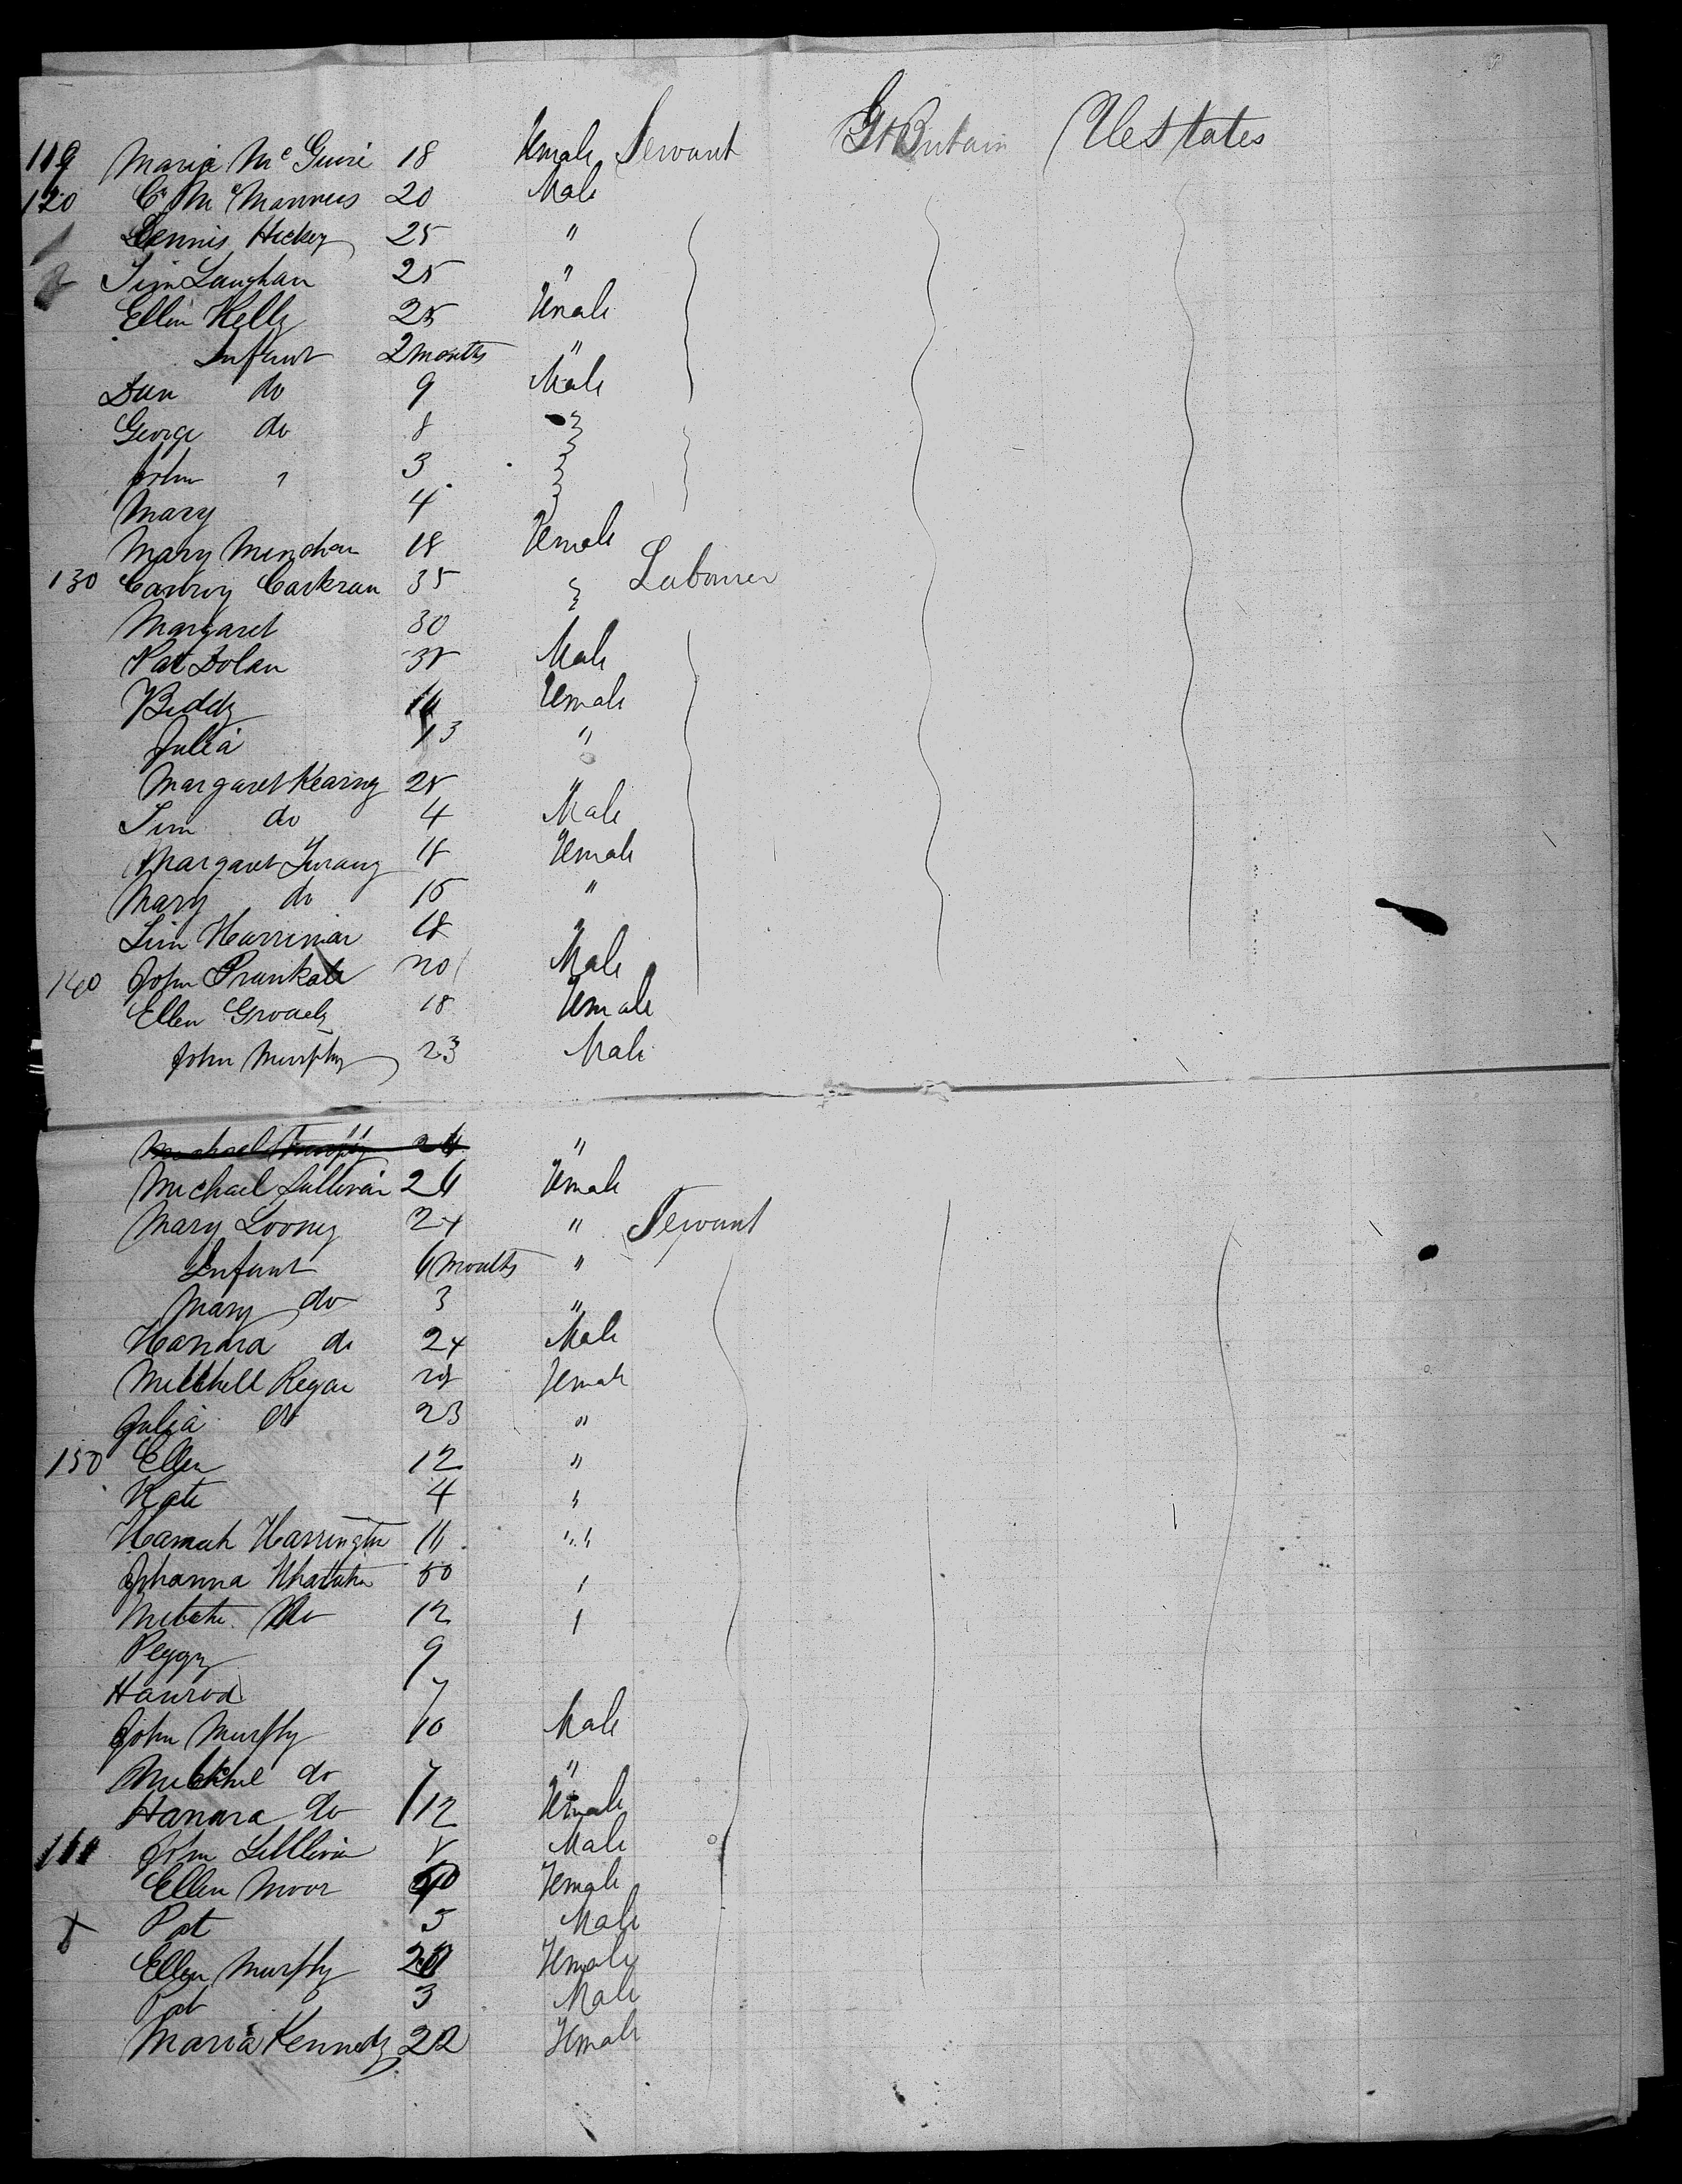 119 Maria McGuire 18 Female Servant Gt Britain U States
120 C McMannus 20 Male
1 Dennis Hickey 25 "
2 Tim Laughan 25 "
Ellen Kelly 25 Female
Infant 2 months "
Dan do 9 Male
George do 8
John " 3
Mary 4
Mary 18 Female
130 35 " Labourer
Margaret 30
Pat Dolan 35 Male
Biddy 16 Female
Julia 13 "
Margaret Kearny 25 "
Tim do 4 Male
Margaret 18 Female
Mary do 15 "
18 "
140 John 20 Male
Ellen 18 Female
John Murphy 23 Male
Michael 26 "
Michael Sullivan 26 Female
Mary Looney 24 " Servant
Infant 6 months "
Mary do 3 "
Hanora do 24 Male
Mitchell Regan Female
Julia do 23 "
150 Ellen 12 "
Kate 4 "
Hannah Harrington 16 "
Johanna 50 "
do 12 "
Peggy 9
7
John Murphy 10 Male
do 7 "
Hanora do 12 Female
160 John Sullivan Male
Ellen Moor Female
Pat 5 Male
Ellen Murphy Female
Pat 3 Male
Maria Kennedy 22 Female